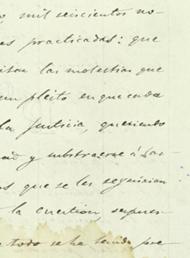 o, mil seiscientos no-
es practicadas: que
itan las molestias que
un pleito en que cada
la Justicia, queriendo
y substraerse á las
os que se les seguirian
la cuestion, supues-
todo se ha tenido pre-